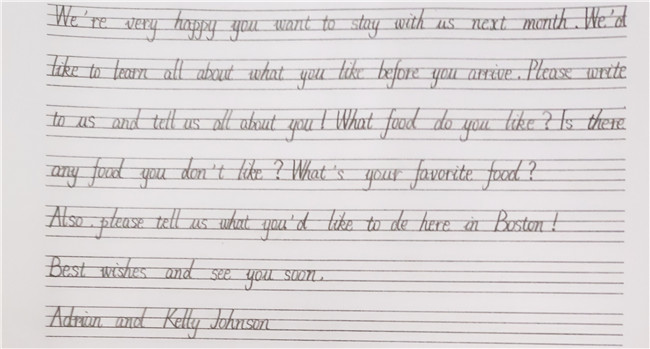 We're very happy you want to stay with us next month. We'd
like to learn all about what you like before you arrive. Please write
to us and tell us all about you! What food do you like? Is there
any food you don't like? What's your favorite food?
Also. please tell us what you'd like to de here in Boston!
Best wishes and see you soon.
Adrian and Kelly Johnson